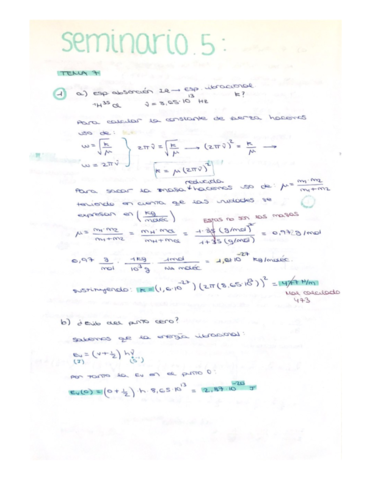 seminario 5:
TEMA 7
1 a) Esp absorción IR → esp vibracional k?
¹H³⁵Cl ν̃ = 8,65·10¹³ Hz
Para calcular la constante de fuerza hacemos
uso de:
ω = √(k/μ)
ω = 2πν̃
2πν̃ = √(k/μ) → (2πν̃)² = k/μ →
k = μ(2πν̃)²
reducida
Para sacar la masa hacemos uso de: μ = m₁·m₂/(m₁+m₂)
teniendo en cuenta que las unidades se
expresan en (kg/moléc) estas no son las masas
μ = m₁·m₂/(m₁+m₂) = mH·mCl/(mH+mCl) = 1·35 (g/mol)²/1+35 (g/mol) = 0,97 g/mol
0,97 g/mol · 1kg/10³g · 1mol/NA moléc = 1,6·10⁻²⁷ kg/moléc
Sustituyendo: k = (1,6·10⁻²⁷)(2π(8,65·10¹³))² = N/m
Mal calculado
473
b) ¿Evib del punto cero?
Sabemos que la energía vibracional:
Ev = (v+½)hν̃
(J) (s⁻¹)
Por tanto la Ev en el punto 0:
Ev(0) = (0+½) h 8,65·10¹³ = 2,87·10⁻²⁰ J